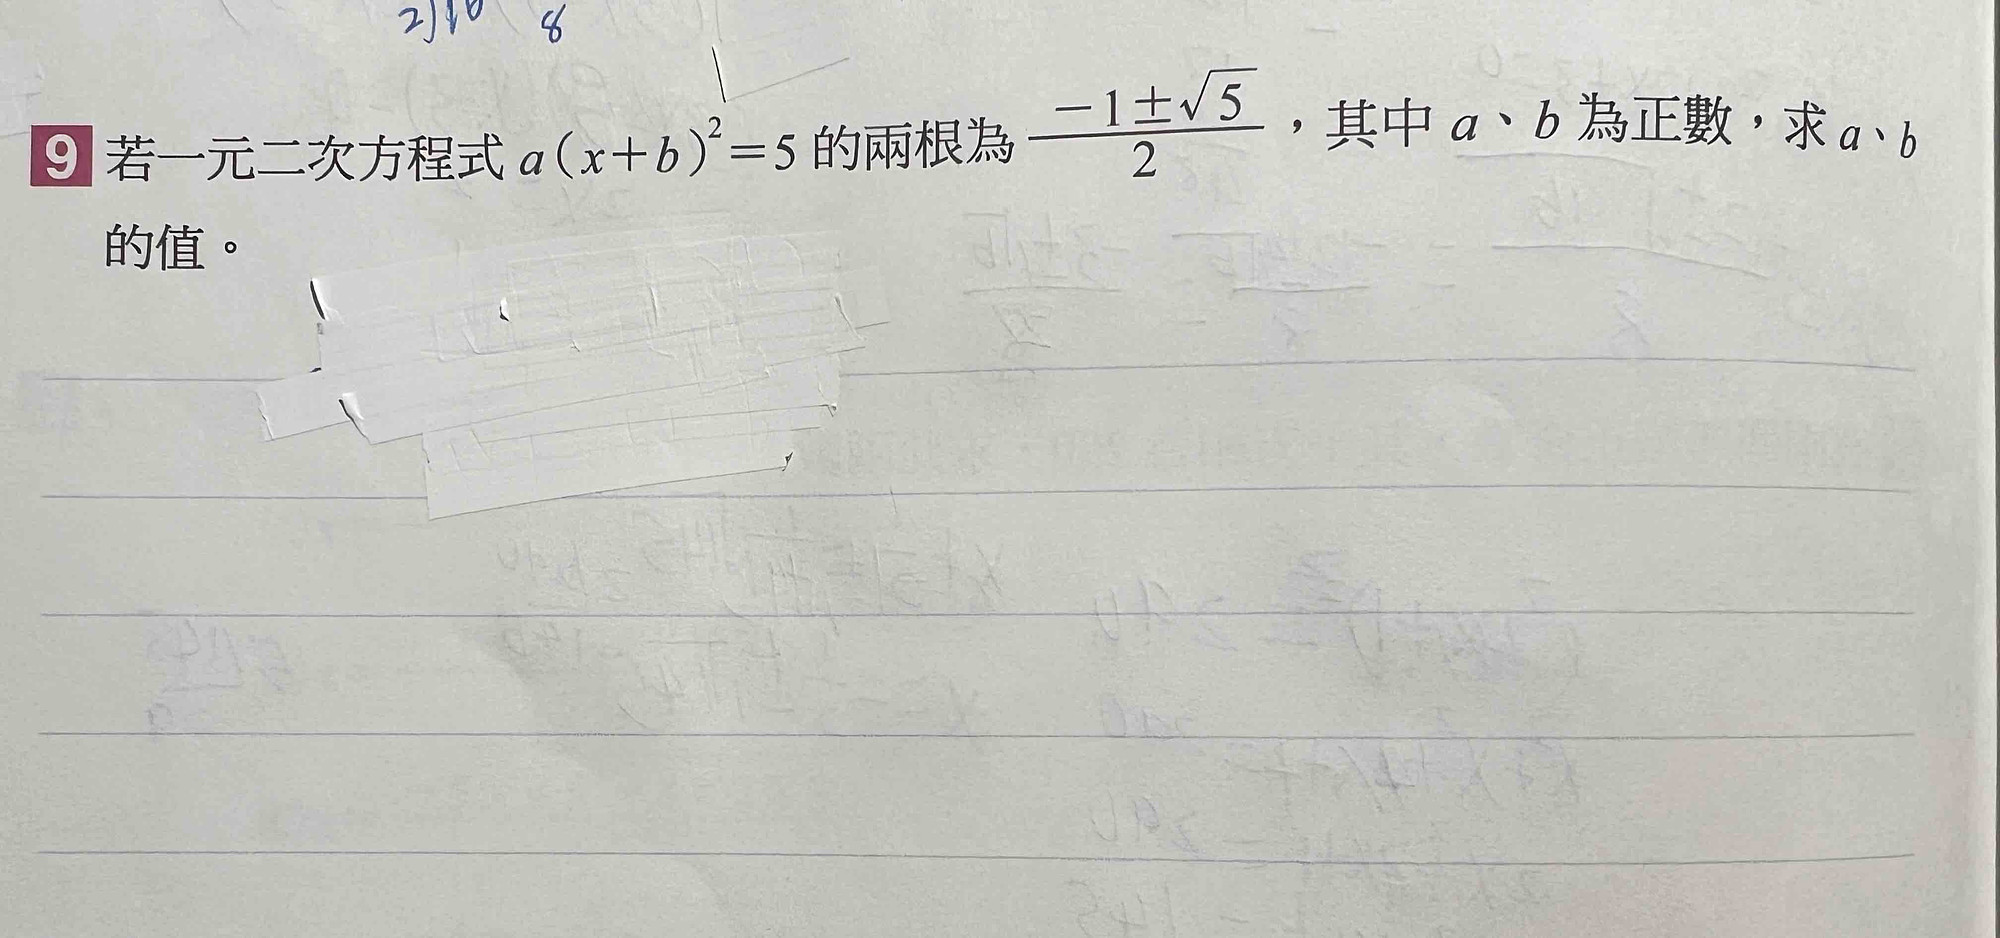 8
9 若一元二次方程式 a(x+b)²=5 的兩根為 (-1±√5)/2,其中 a、b 為正數,求 a、b
的值。